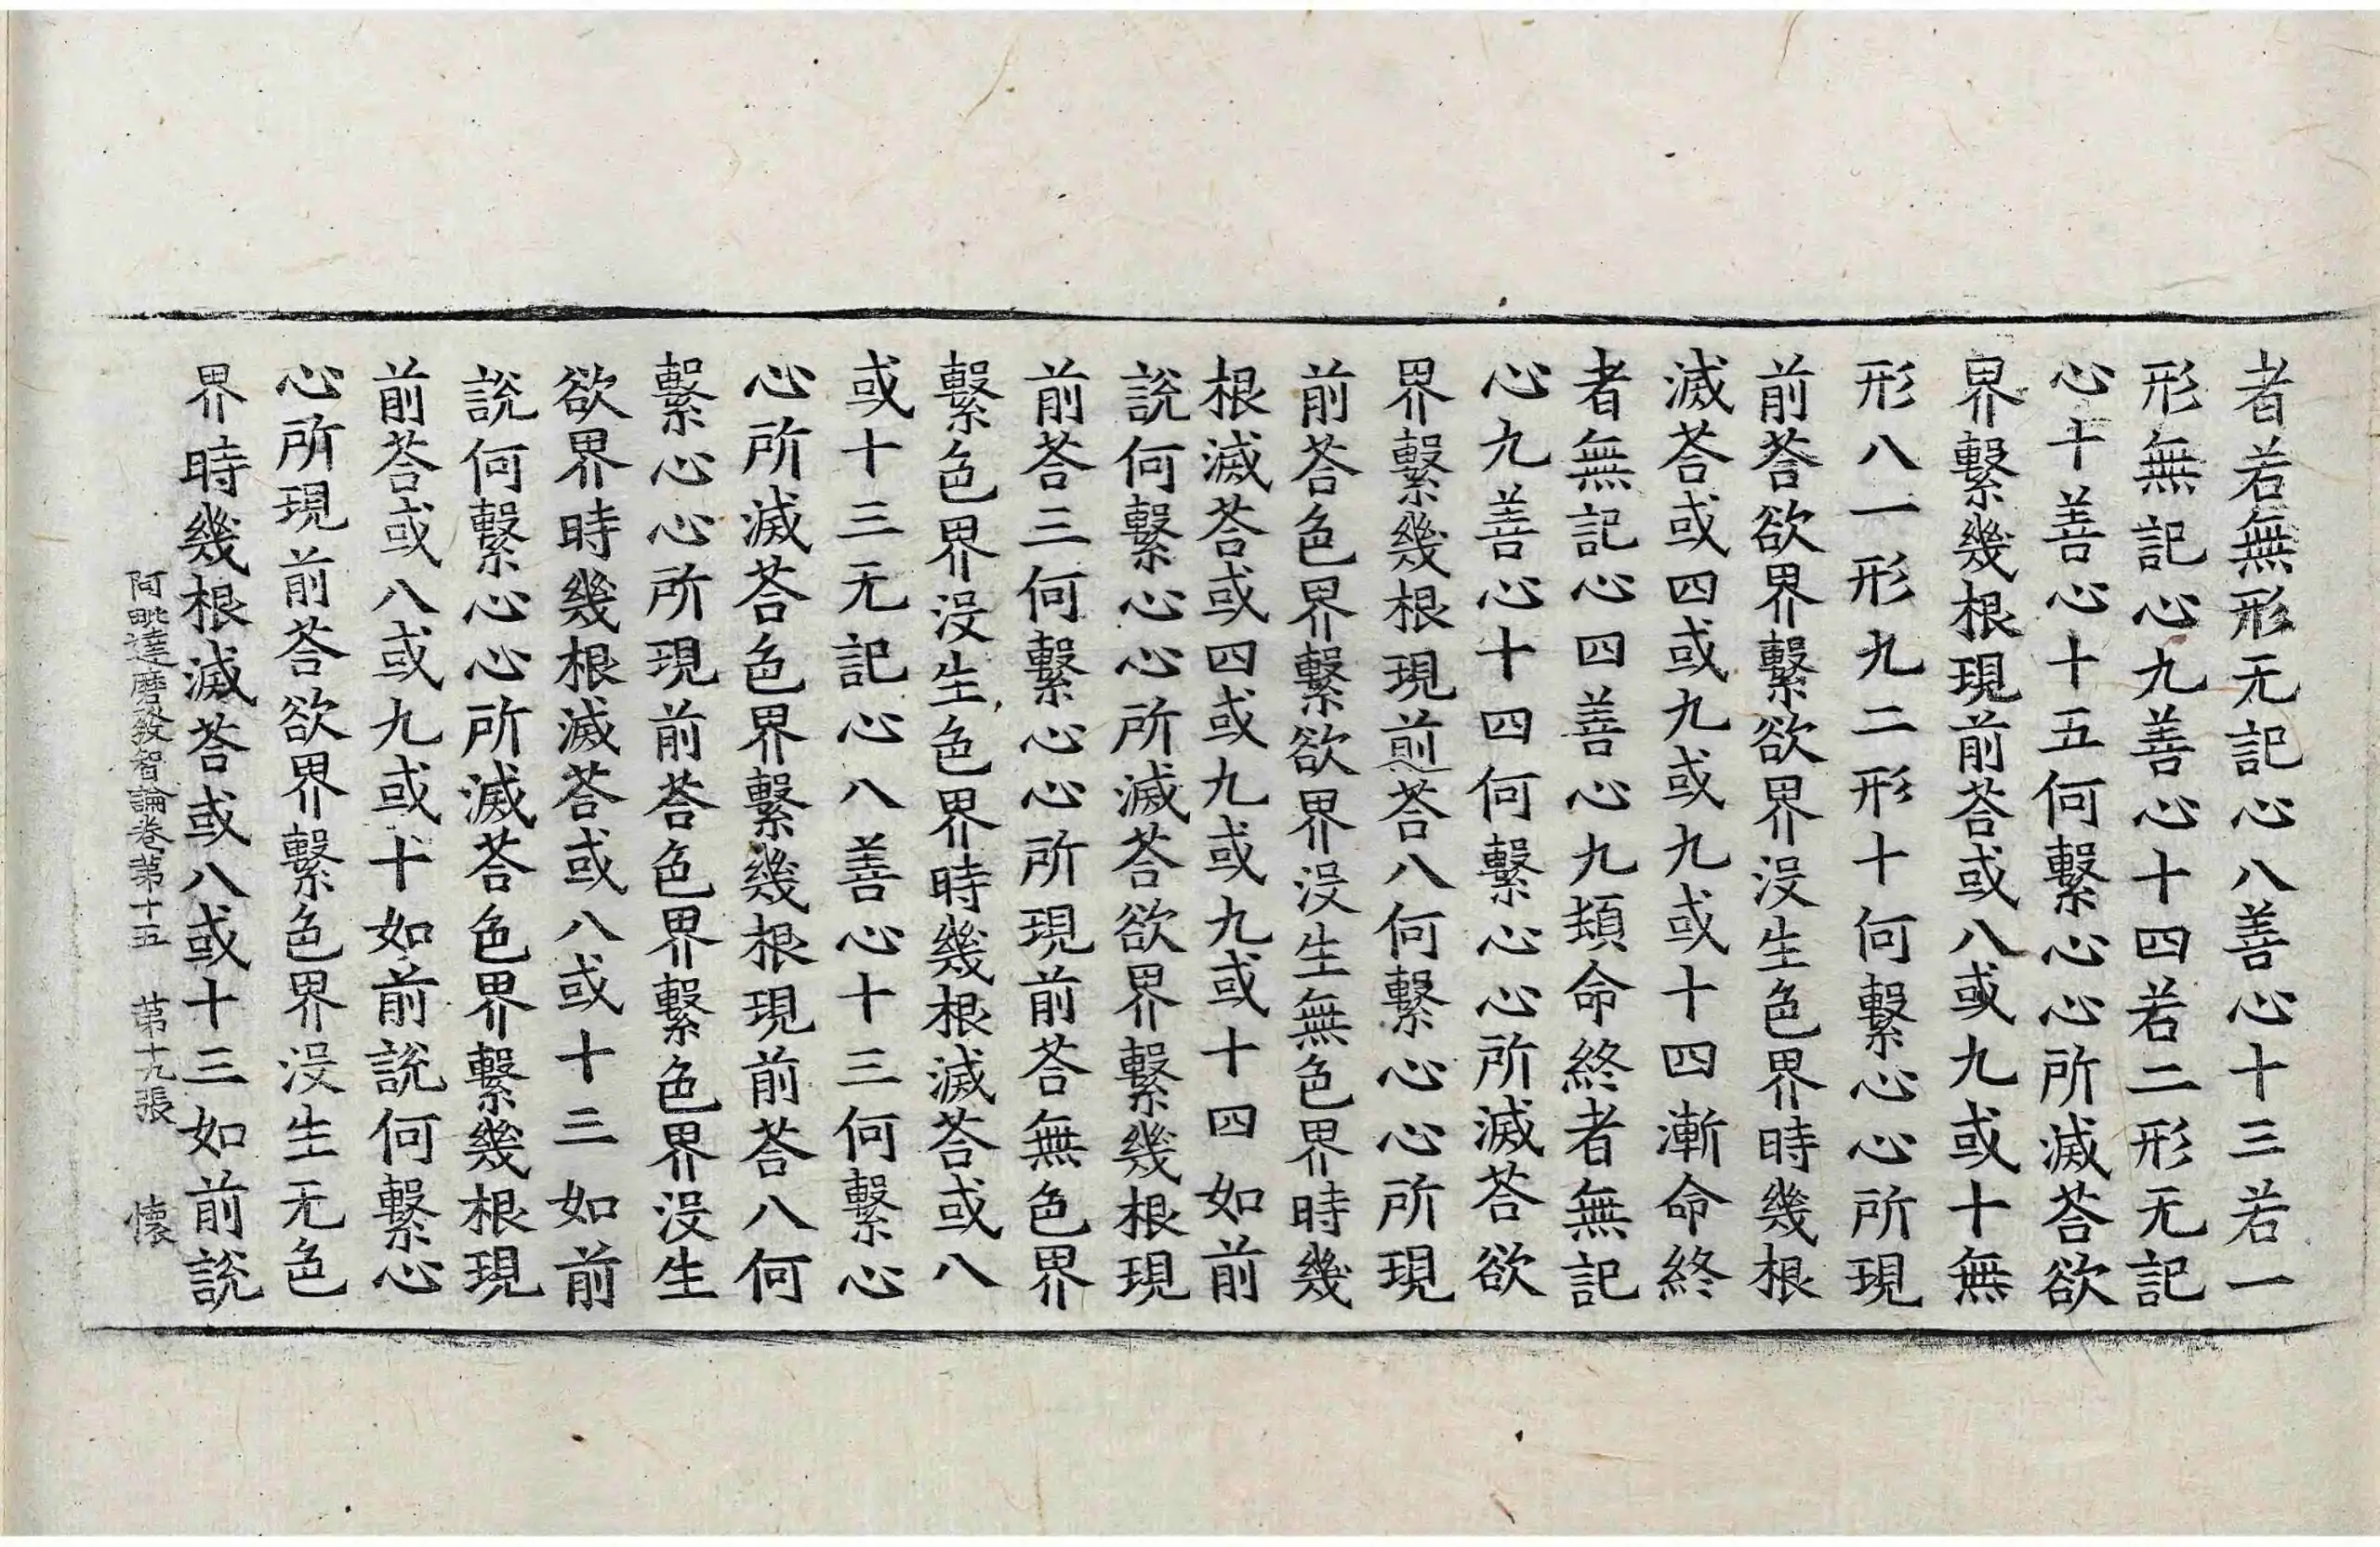 者若無形无記心八善心十三若一
形無記心九善心十四若二形无記
心十善心十五何繫心心所滅荅欲
界繫幾根現前荅或八或九或十無
形八一形九二形十何繫心心所現
前荅欲界繫欲界没生色界時幾根
滅荅或四或九或九或十四漸命終
者無記心四善心九頓命終者無記
心九善心十四何繫心心所滅荅欲
界繫幾根現前荅八何繫心心所現
前荅色界繫欲界没生無色界時幾
根滅荅或四或九或九或十四如前
說何繫心心所滅荅欲界繫幾根現
前荅三何繫心心所現前荅無色界
繫色界没生色界時幾根滅荅或八
或十三无記心八善心十三何繫心
心所滅荅色界繫幾根現前荅八何
繫心心所現前荅色界繫色界没生
欲界時幾根滅荅或八或十三如前
說何繫心心所滅荅色界繫幾根現
前荅或八或九或十如前說何繫心
心所現前荅欲界繫色界没生无色
界時幾根滅荅或八或十三如前說
阿毗達磨發智論卷第十五 第十九張 懷